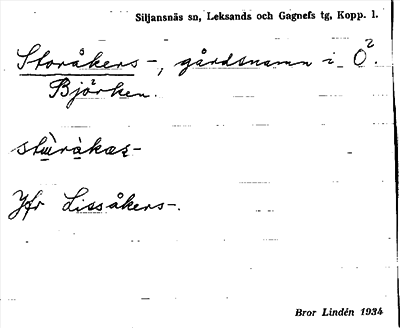 Siljansnäs sn, Leksands och Gagnefs tg, Kopp. l.
Storåkers-, gårdsnamn i Ö².
Bjö²rken.
Jfr Lissåkers-.
Bror Lindén 1934